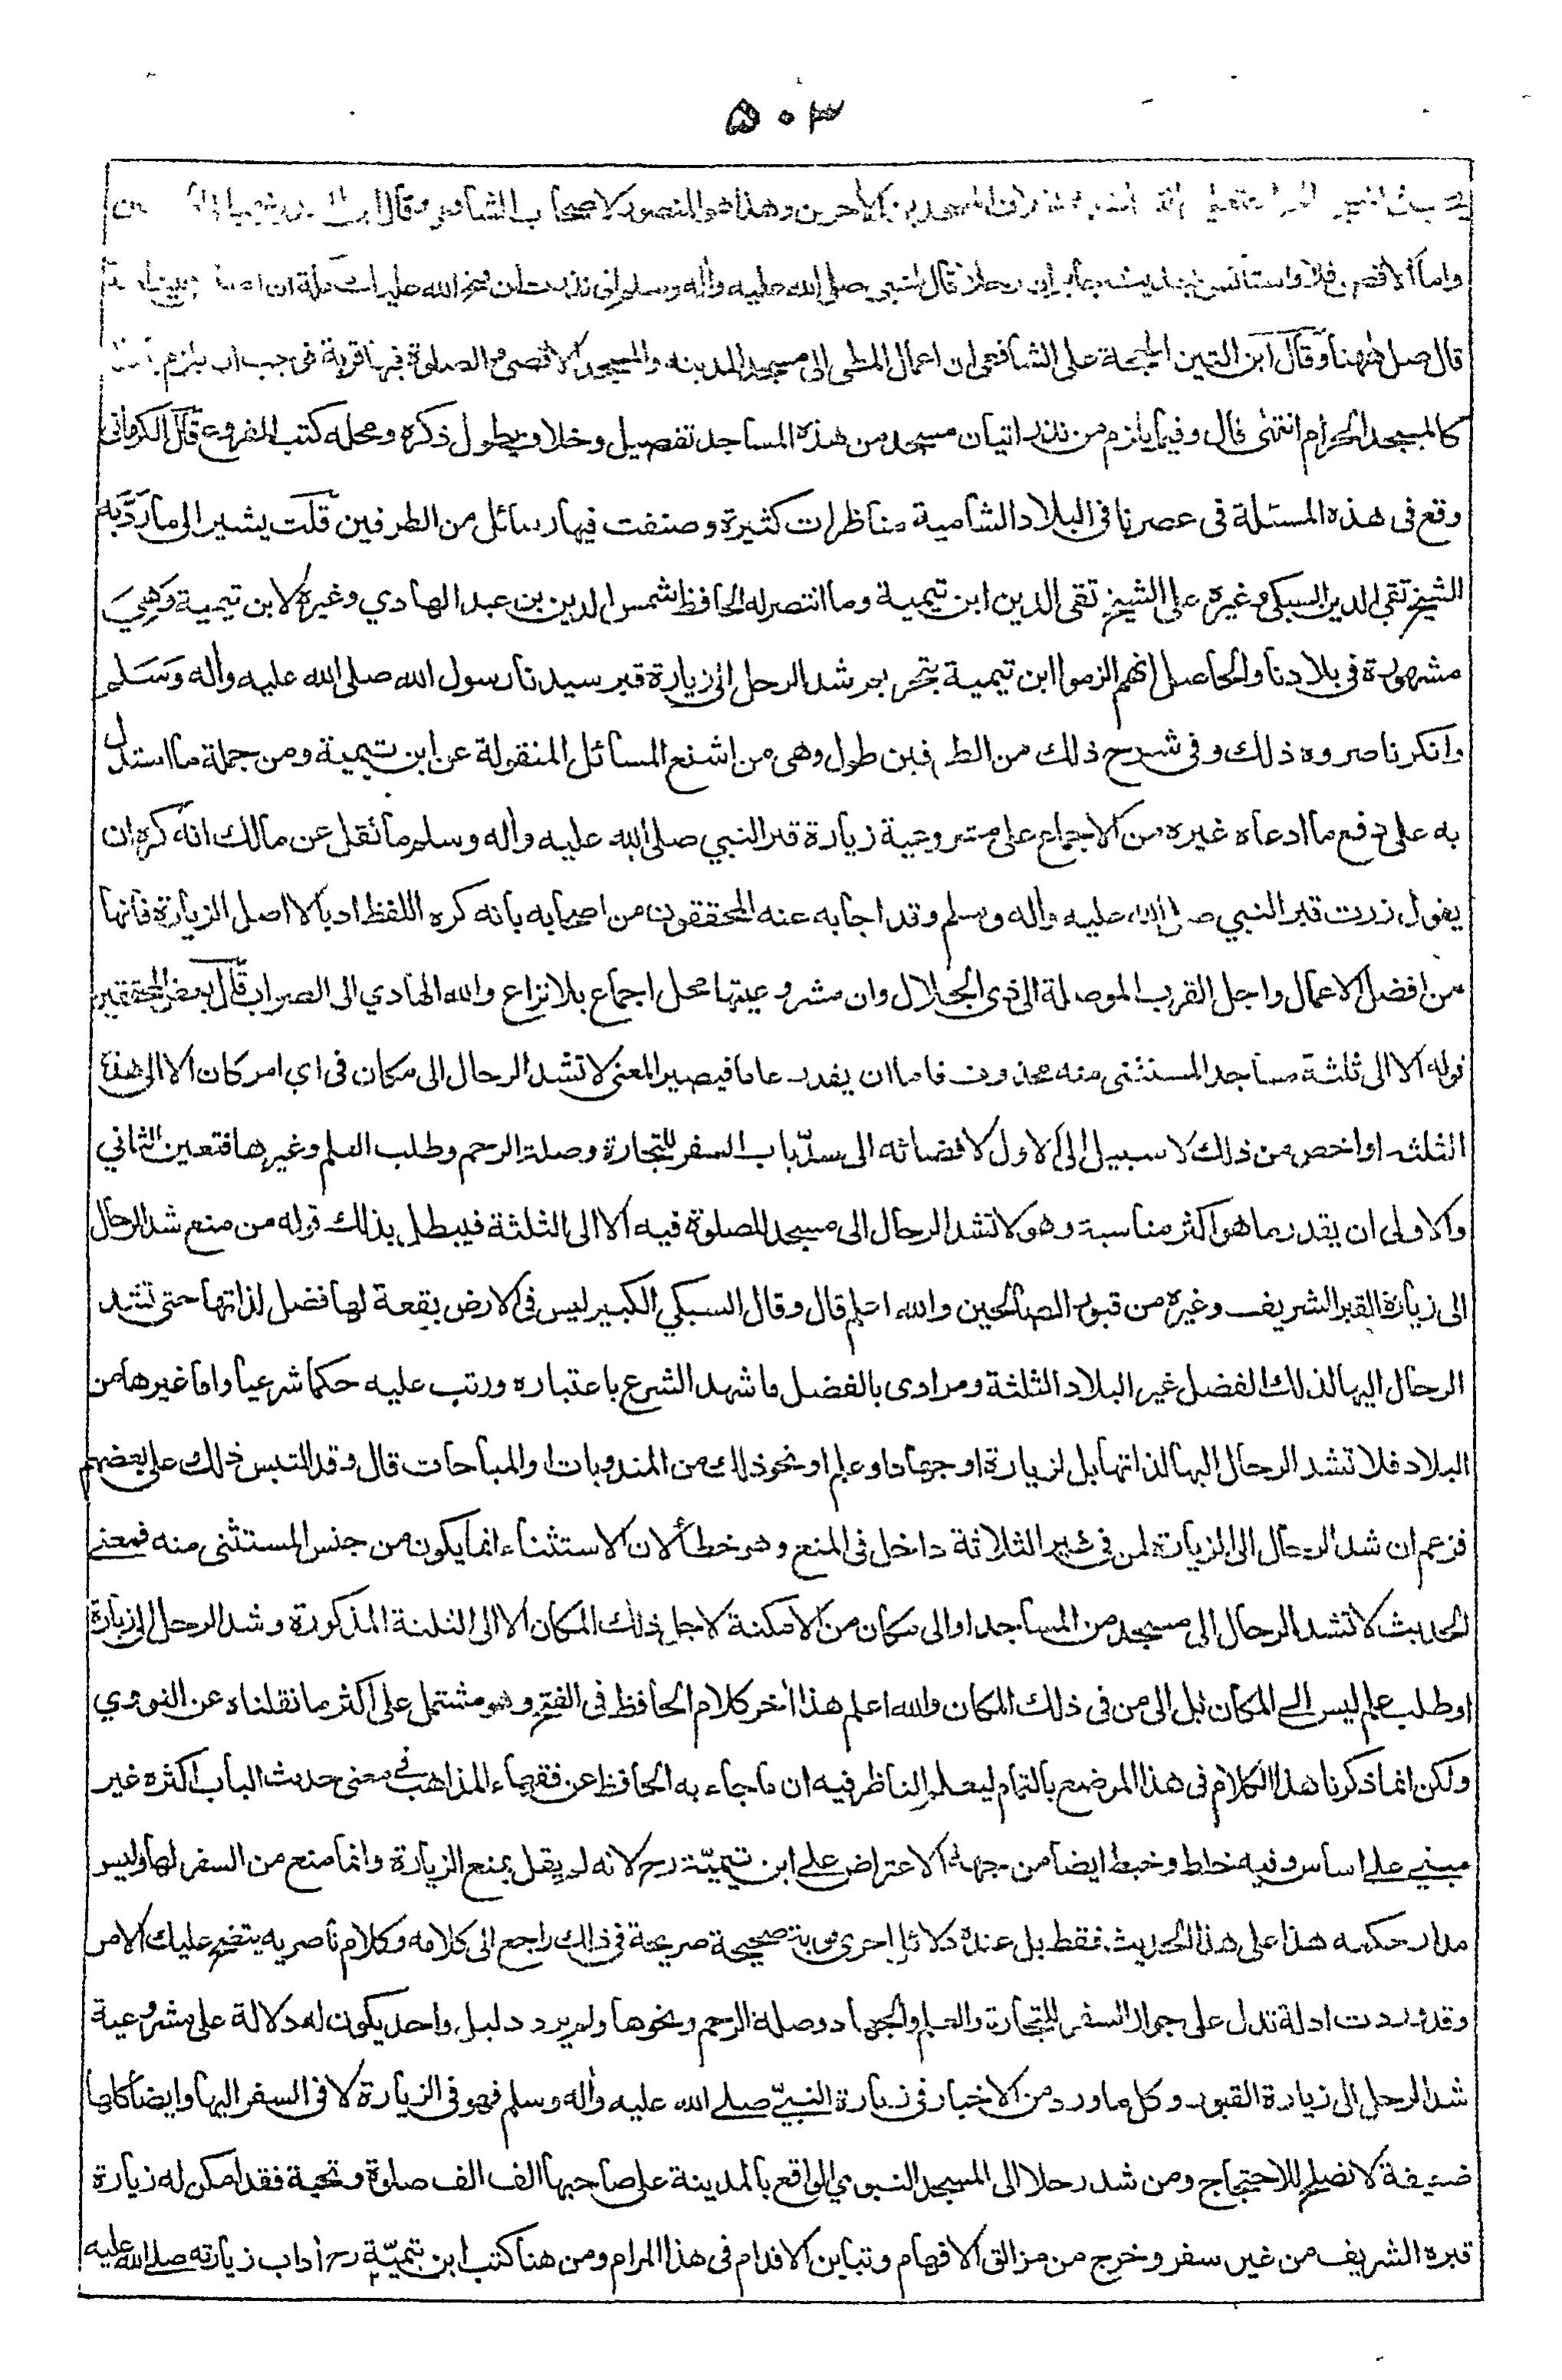 ۵۰۳
المسجدين الأخرين وهذا هو المنصور لاصحاب الشافعي وقال ابن
واما الاقصى فلا واستأنس بحديث جابر ان رجلا قال للنبي صلى الله عليه وأله وسلم انى نذرت ان فتح الله عليك مكة ان اصلى
قال صل ههنا وقال ابن التين الحجة على الشافعي ان اعمال المطى الى مسجد المدينة والمسجد الاقصى والصلوة فيهما قربة فوجب ان يلزم
كالمسجد الحرام انتهى قال وفيما يلزم من نذر اتيان مسجد من هذه المساجد تفصيل وخلاف يطول ذكره ومحله كتب الفروع قال الكرمانى
وقع فى هذه المسئلة فى عصرنا فى البلاد الشامية مناظرات كثيرة وصنفت فيها رسائل من الطرفين قلت يشير الى ما رَدَّ به
الشيخ تقى الدين السبكى وغيره على الشيخ تقى الدين ابن تيمية وما انتصر له الحافظ شمس الدين بن عبد الهادي وغيره لابن تيمية وَهِيَ
مشهورة فى بلادنا والحاصل انهم الزموا ابن تيمية بتحريم شد الرحل الى زيارة قبر سيدنا رسول الله صلى الله عليه وأله وَسَلم
وانكرنا صروه ذلك وفى شرح ذلك من الطرفين طول وهى من اشنع المسائل المنقولة عن ابن تيمية ومن جملة ما استدل
به على دفع ما ادعاه غيره من الاجماع على مشروعية زيارة قبر النبي صلى الله عليه وأله وسلم ما نقل عن مالك انه كره ان
يقول زرت قبر النبي صلى الله عليه وأله وسلم وقد اجابه عنه المحققون من اصحابه بانه كره اللفظ ادبا لا اصل الزيارة فانها
من افضل الاعمال واجل القرب الموصلة الى ذى الجلال وان مشروعيتها محل اجماع بلا نزاع والله الهادي الى الصواب قال بعض المحققين
قوله الا الى ثلثة مساجد المستثنى منه محذوف فاما ان يقدر عاما فيصير المعنى لا تشد الرحال الى مكان فى اي امر كان الا الى هذه
الثلثة او اخص من ذلك لا سبيل الى الاول لافضائه الى سدّ باب السفر للتجارة وصلة الرحم وطلب العلم وغيرها فتعين الثاني
والاولى ان يقدر ما هو اكثر مناسبة وهو لا تشد الرحال الى مسجد للصلوة فيه الا الى الثلثة فيبطل بذلك قوله من منع شد الرحال
الى زيارة القبر الشريف وغيره من قبور الصالحين والله اعلم قال وقال السبكي الكبير ليس فى الارض بقعة لها فضل لذاتها حتى تشد
الرحال اليها لذلك الفضل غير البلاد الثلثة ومرادى بالفضل ما شهد الشرع باعتباره ورتب عليه حكما شرعيا واما غيرها من
البلاد فلا تشد الرحال اليها لذاتها بل لزيارة او جهاد او علم او نحو ذلك من المندوبات او المباحات قال وقد التبس ذلك على بعضهم
فزعم ان شد الرحال الى الزيارة لمن فى غير الثلاثة داخل فى المنع وهو خطأ لان الاستثناء انما يكون من جنس المستثنى منه فمعنى
الحديث لا تشد الرحال الى مسجد من المساجد او الى مكان من الامكنة لاجل ذلك المكان الا الى الثلثة المذكورة وشد الرحل الى زيارة
او طلب علم ليس الى المكان بل الى من فى ذلك المكان والله اعلم هذا أخر كلام الحافظ فى الفتح وهو مشتمل على اكثر ما نقلناه عن النووي
ولكن انما ذكرنا هذا الكلام فى هذا الموضع بالتمام ليعلم الناظر فيه ان ما جاء به الحافظ عن فقهاء المذاهب فى معنى حديث الباب اكثره غير
مبنى على اساس وفيه خلط وخبط ايضا من جهة الاعتراض على ابن تيميّة رح لانه لم يقل بمنع الزيارة وانما منع من السفر لها وليس
مدار حكمه هذا على هذا الحديث فقط بل عنده دلائل اخرى صحيحة صريحة فى ذلك راجع الى كلامه وكلام ناصريه يتضح عليك الامر
وقد وردت ادلة تدل على جواز السفر للتجارة والعلم والجهاد وصلة الرحم ونحوها ولم يرد دليل واحد يكون له دلالة على مشروعية
شد الرحل الى زيارة القبور وكل ما ورد من الاخبار فى زيارة النبيّ صلى الله عليه وأله وسلم فهو فى الزيارة لا فى السفر اليها وايضا كلها
ضعيفة لا تصلح للاحتجاج ومن شد رحلا الى المسجد النبوي الواقع بالمدينة على صاحبها الف الف صلوة وتحية فقد امكن له زيارة
قبره الشريف من غير سفر وخرج من مزالق الافهام وتباين الاقدام فى هذا المرام ومن هنا كتب ابن تيميّة رح أداب زيارته صلى الله عليه